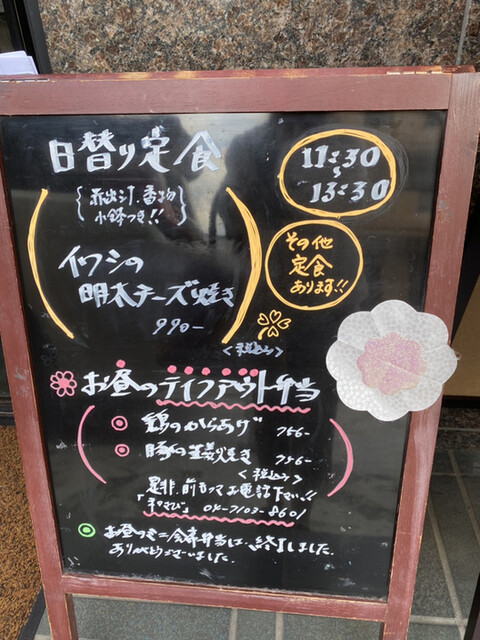 日替り定食
赤出汁.香物
小鉢つき!!
11:30
~
13:30
イワシの
明太チーズ焼き
990-
<税込み>
その他
定食
あります!!
お昼のテイクアウト弁当
鶏のからあげ 756-
豚の生姜焼き 756-
<税込み>
是非.前もってお電話下さい!!
「わさび」 04-7103-8601
お昼のミニ会席弁当は、終了しました.
ありがとうございました.